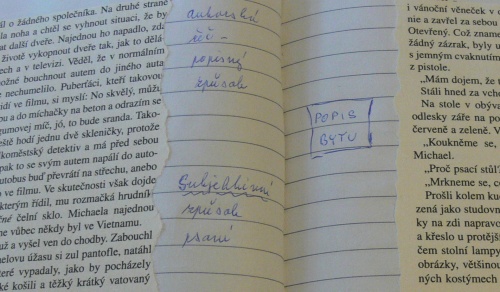 il o žádného společníka. Na druhé straně
la noha a chtěl se vyhnout situaci, že by
at další dveře. Najednou ho napadlo, zda
životě vykopnout dveře tak, jak to dělá-
ech a v televizi. Věděl, že v normálním
ožné bouchnout autem do jiného auta
e nechumelilo. Puberťáci, kteří takovou
idí ve filmu, si myslí: No skvělý, můžu
u a do míchačky na beton a odrazím se
gumovej míč, jó, to bude sranda. Tako-
eště hodí jednu dvě skleničky, protože
komětský detektiv a má před sebou
pak to se svým autem napálí do auto-
tobus buď převrátí na střechu, anebo
o ve filmu. Ve skutečnosti však dojde
kterým řídil, mu rozmačká hrudní
čné čelní sklo. Michaela najednou
ne vůbec někdy byl ve Vietnamu.
už a vyšel ven do chodby. Zabouchl
elovu úžasu si zul pantofle, natáhl
teré vypadaly, jako by pocházely
ké košili a těžký krátký vatovaný
autorská
řeč –
popisný
způsob
Subjektivní
způsob
psaní
POPIS
BYTU
i vánoční věneček v o
nie a zavřel za sebou
Otevřený. Což zname
žádný zázrak, byly u
s jemným cvaknutím
z pistole.
„Mám dojem, že t
Stáli hned za vcho
Na stole v obýv
odlesky záře na po
červené a zeleně. T
„Koukněme se,
Michael.
„Proč psací stůl?
„Mrkneme se, c
Prošli kolem kuc
zená jako studovn
ky na zdi napravo
a křeslo u protějš
čem stolní lampy
obrázky, většinou
ných kostýmech